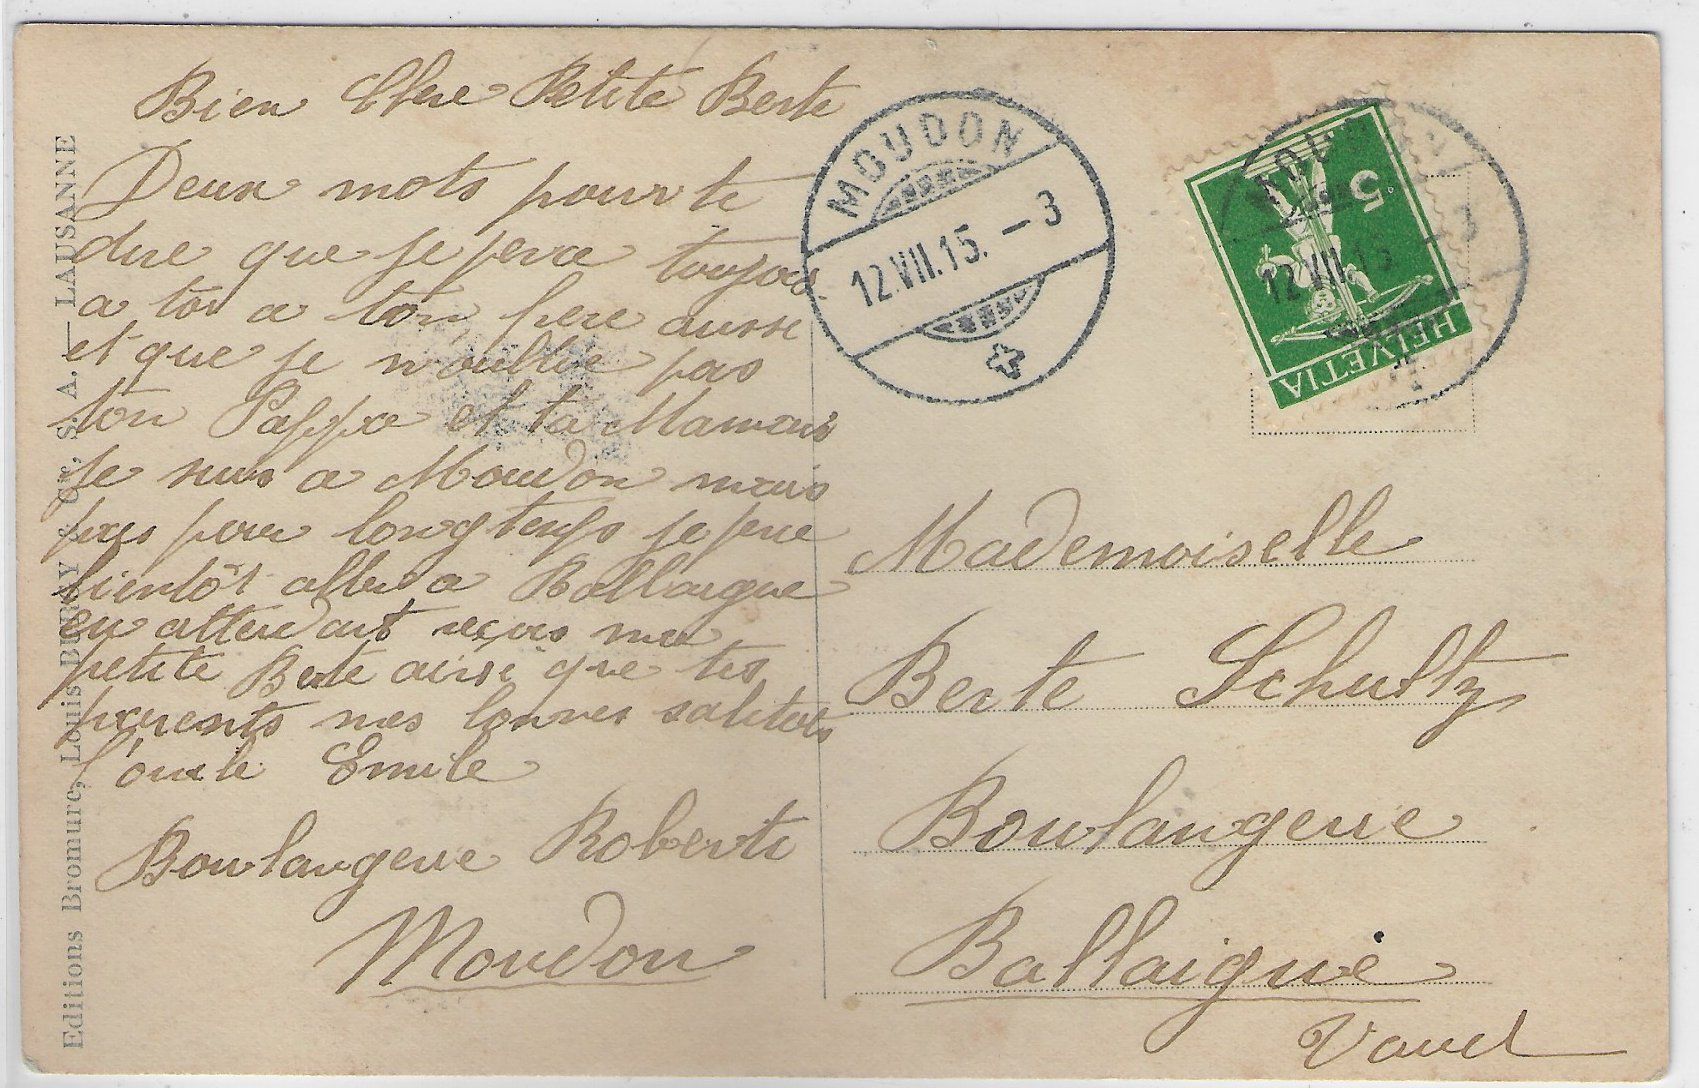 Bien Chere Petite Berte
Deux mots pour te
dire que je pence toujours
a toi a ton pere ausse
et que je n'oublie pas
ton Pappa et ta Maman
je suis a Moudon mais
pas pour longtemps je pence
bientôt aller a Ballaigue
en attendant reçois ma
petite Berte ainsi que tes
parents mes bonnes salitots
l'oncle Emile
Boulangerie Roberti
Moudon
Editions Bromure, Louis BURGY & Cie, S. A. — LAUSANNE
MOUDON
12.VII.15. – 3
MOUDON
12.VII.15. – 3
5
HELVETIA
Mademoiselle
Berte Schultz
Boulangerie
Ballaigue
Vaud